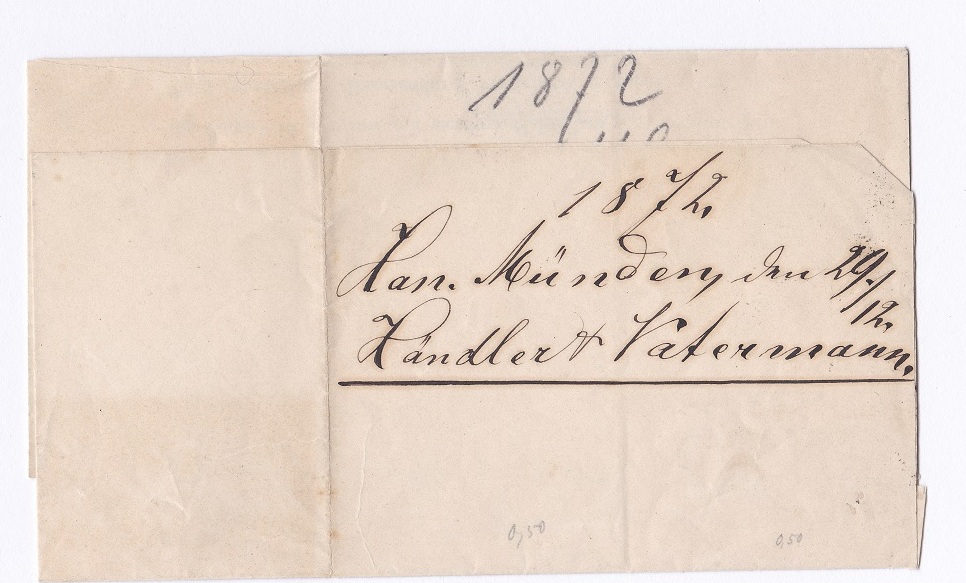 1872
1872.
Han. Münden, den 29./12.
Händler & Vatermann.
0,50 0,50